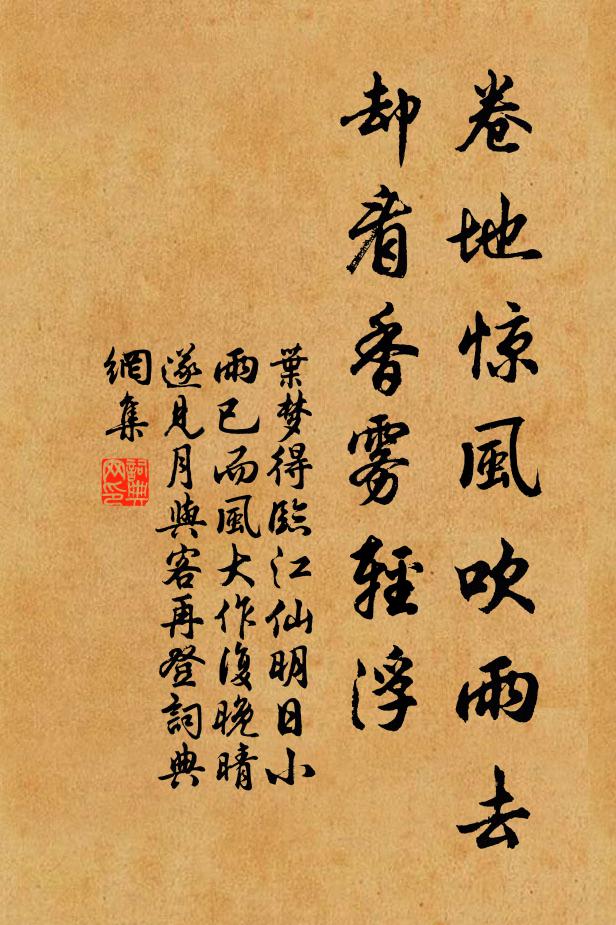 卷地惊風吹雨去
却看香雾輕浮
葉梦得臨江仙明日小
雨已而風大作復晚晴
遂見月與客再登詞典
網集
詞典網印